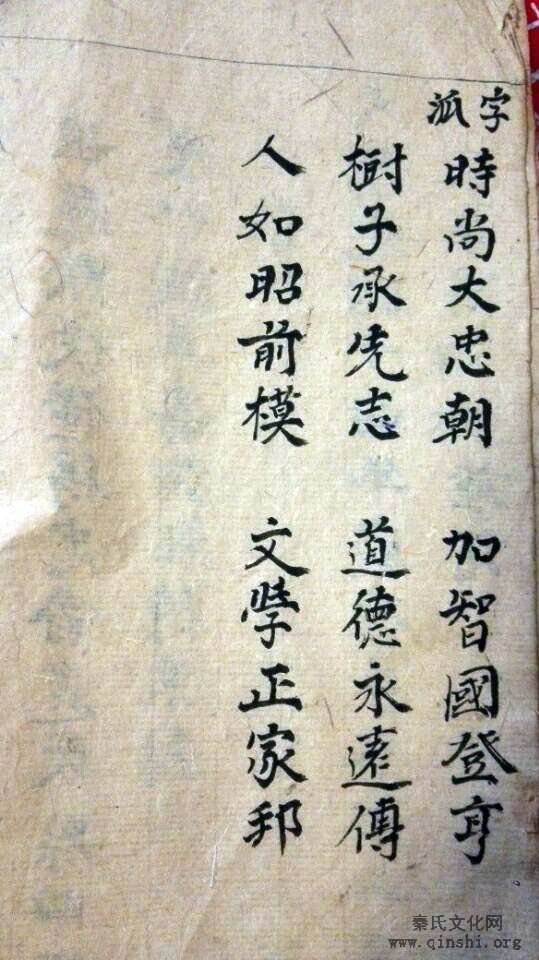 字派
時尚大忠朝 加智國登亨
樹子承先志 道德永遠傳
人如昭前模 文學正家邦
秦氏文化网
www.qinshi.org